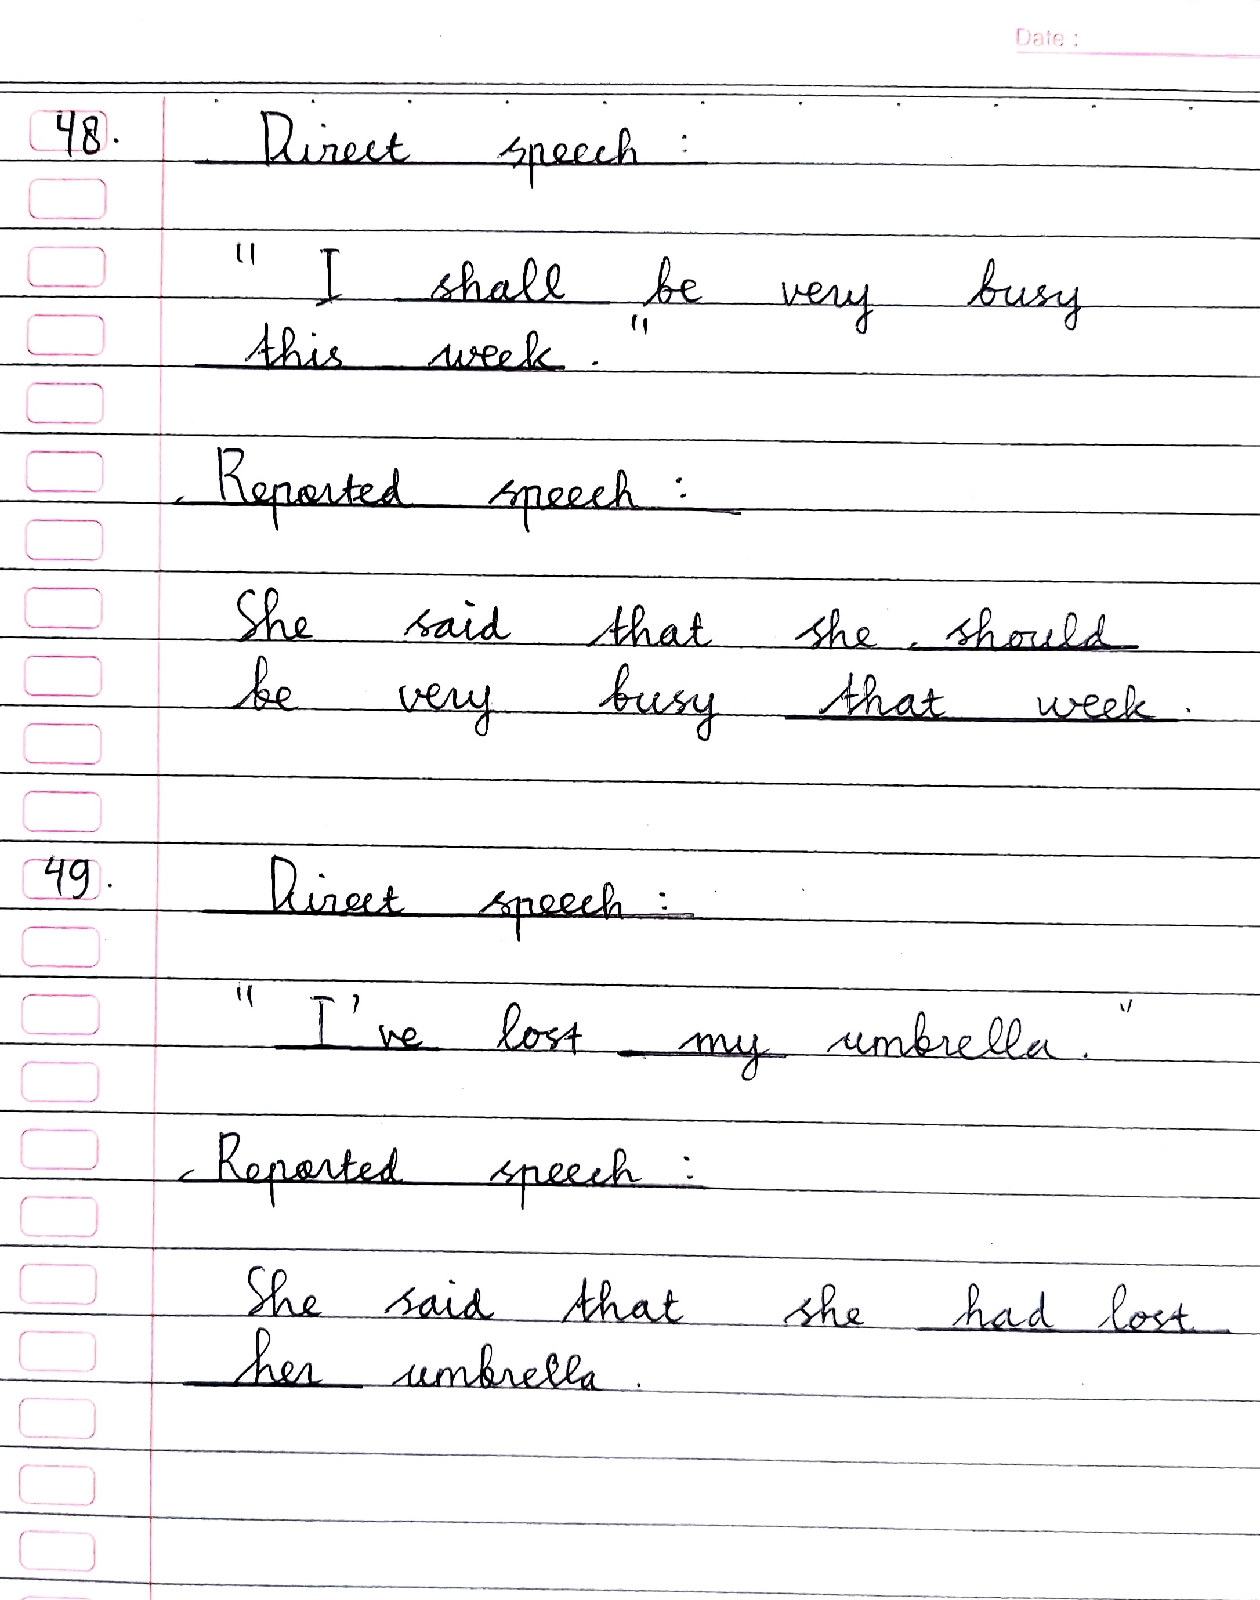 Date :
48. Direct speech :
" I shall be very busy
this week . "
Reported speech :
She said that she should
be very busy that week .
49. Direct speech :
" I've lost my umbrella . "
Reported speech :
She said that she had lost
her umbrella .